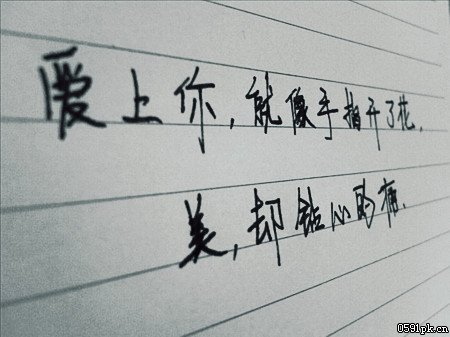 爱上你,就像手指开了花,
美,却钻心的痛.
0591pk.cn